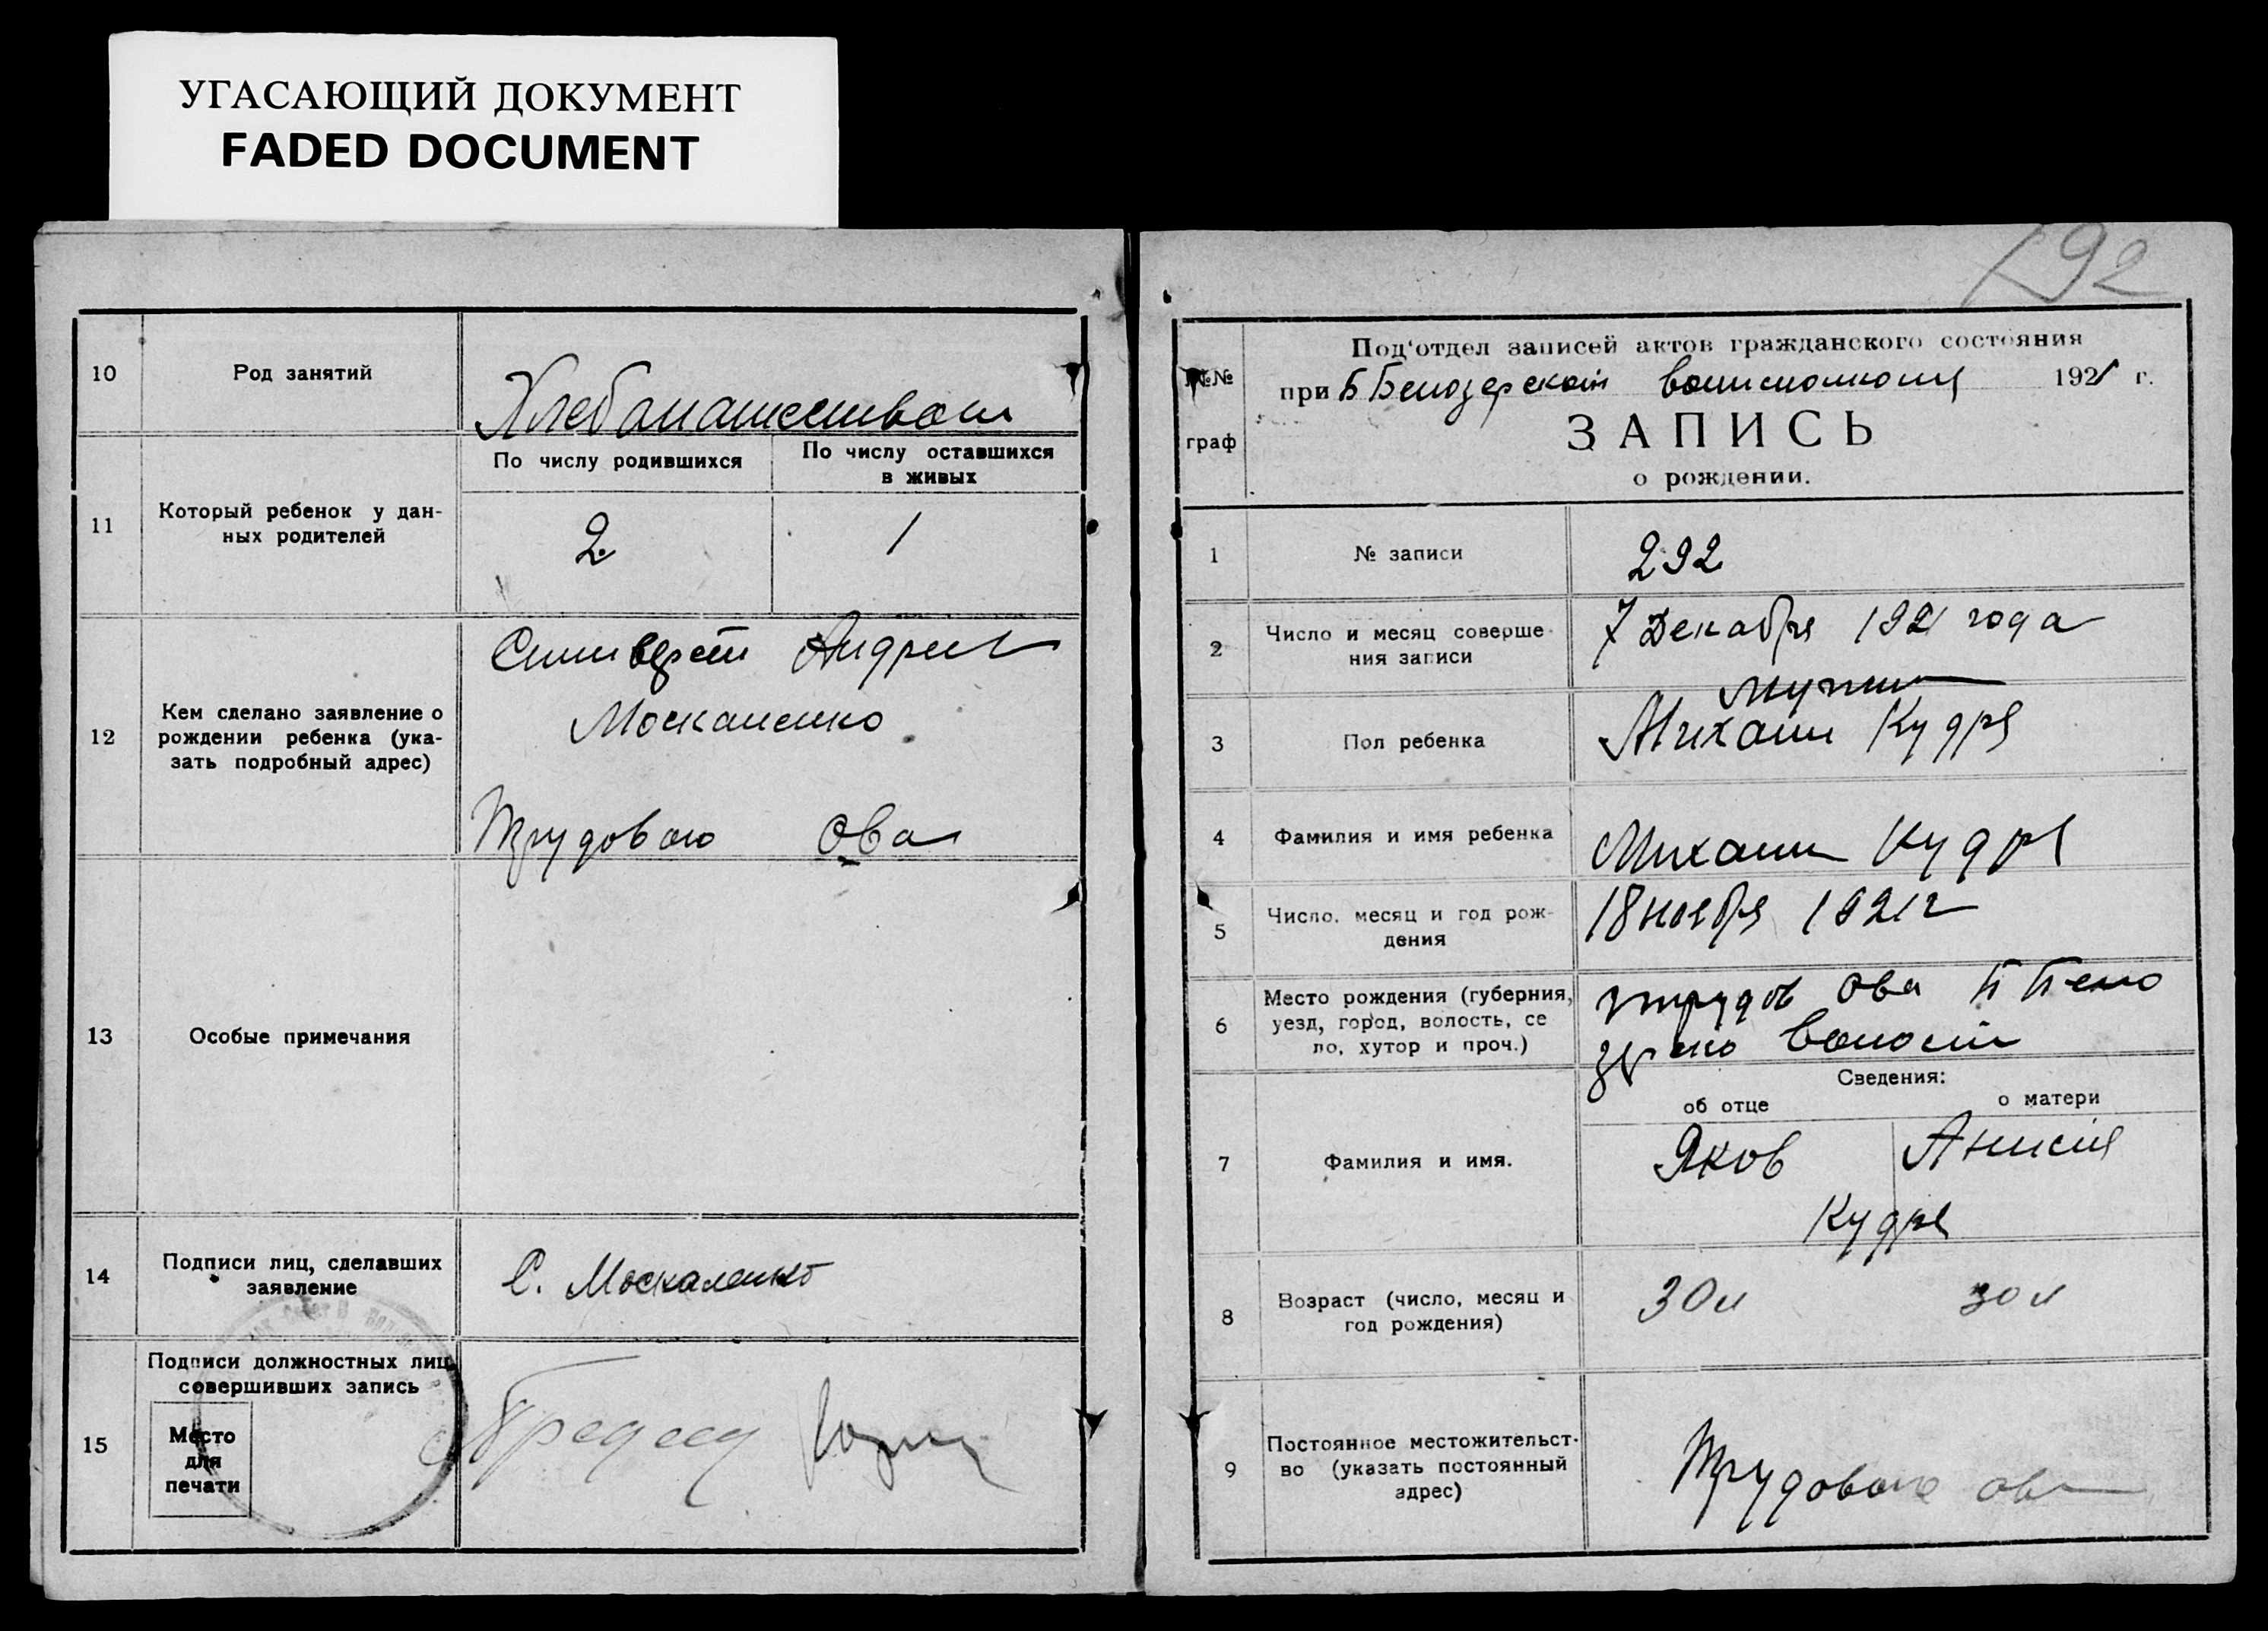 УГАСАЮЩИЙ ДОКУМЕНТ
FADED DOCUMENT
10
Род занятий
Хлебопашеством
11
Который ребенок у дан-
ных родителей
По числу родившихся
По числу оставшихся
в живых
2
1
12
Кем сделано заявление о
рождении ребенка (ука-
зать подробный адрес)
Андрей
Москаленко
Трудового о-ва
13
Особые примечания
14
Подписи лиц, сделавших
заявление
С. Москаленко
15
Подписи должностных лиц,
совершивших запись
Место
для
печати
292
№№
граф
Под‘отдел записей актов гражданского состояния
при Б Белозерском волисполкоме 1921 г.
ЗАПИСЬ
о рождении.
1
№ записи
292
2
Число и месяц соверше-
ния записи
7 Декабря 1921 года
3
Пол ребенка
мужи
Михаил Кудря
4
Фамилия и имя ребенка
Михаил Кудря
5
Число, месяц и год рож-
дения
18 ноября 1921 г
6
Место рождения (губерния,
уезд, город, волость, се
ло, хутор и проч.)
трудов ова Б Бело
зерско волости
Сведения:
об отце
о матери
7
Фамилия и имя.
Яков
Анисия
Кудря
8
Возраст (число, месяц и
год рождения)
30 л
30 л
9
Постоянное местожительст-
во (указать постоянный
адрес)
Трудового ова